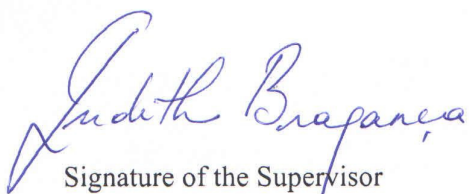 Judith Bragança
Signature of the Supervisor